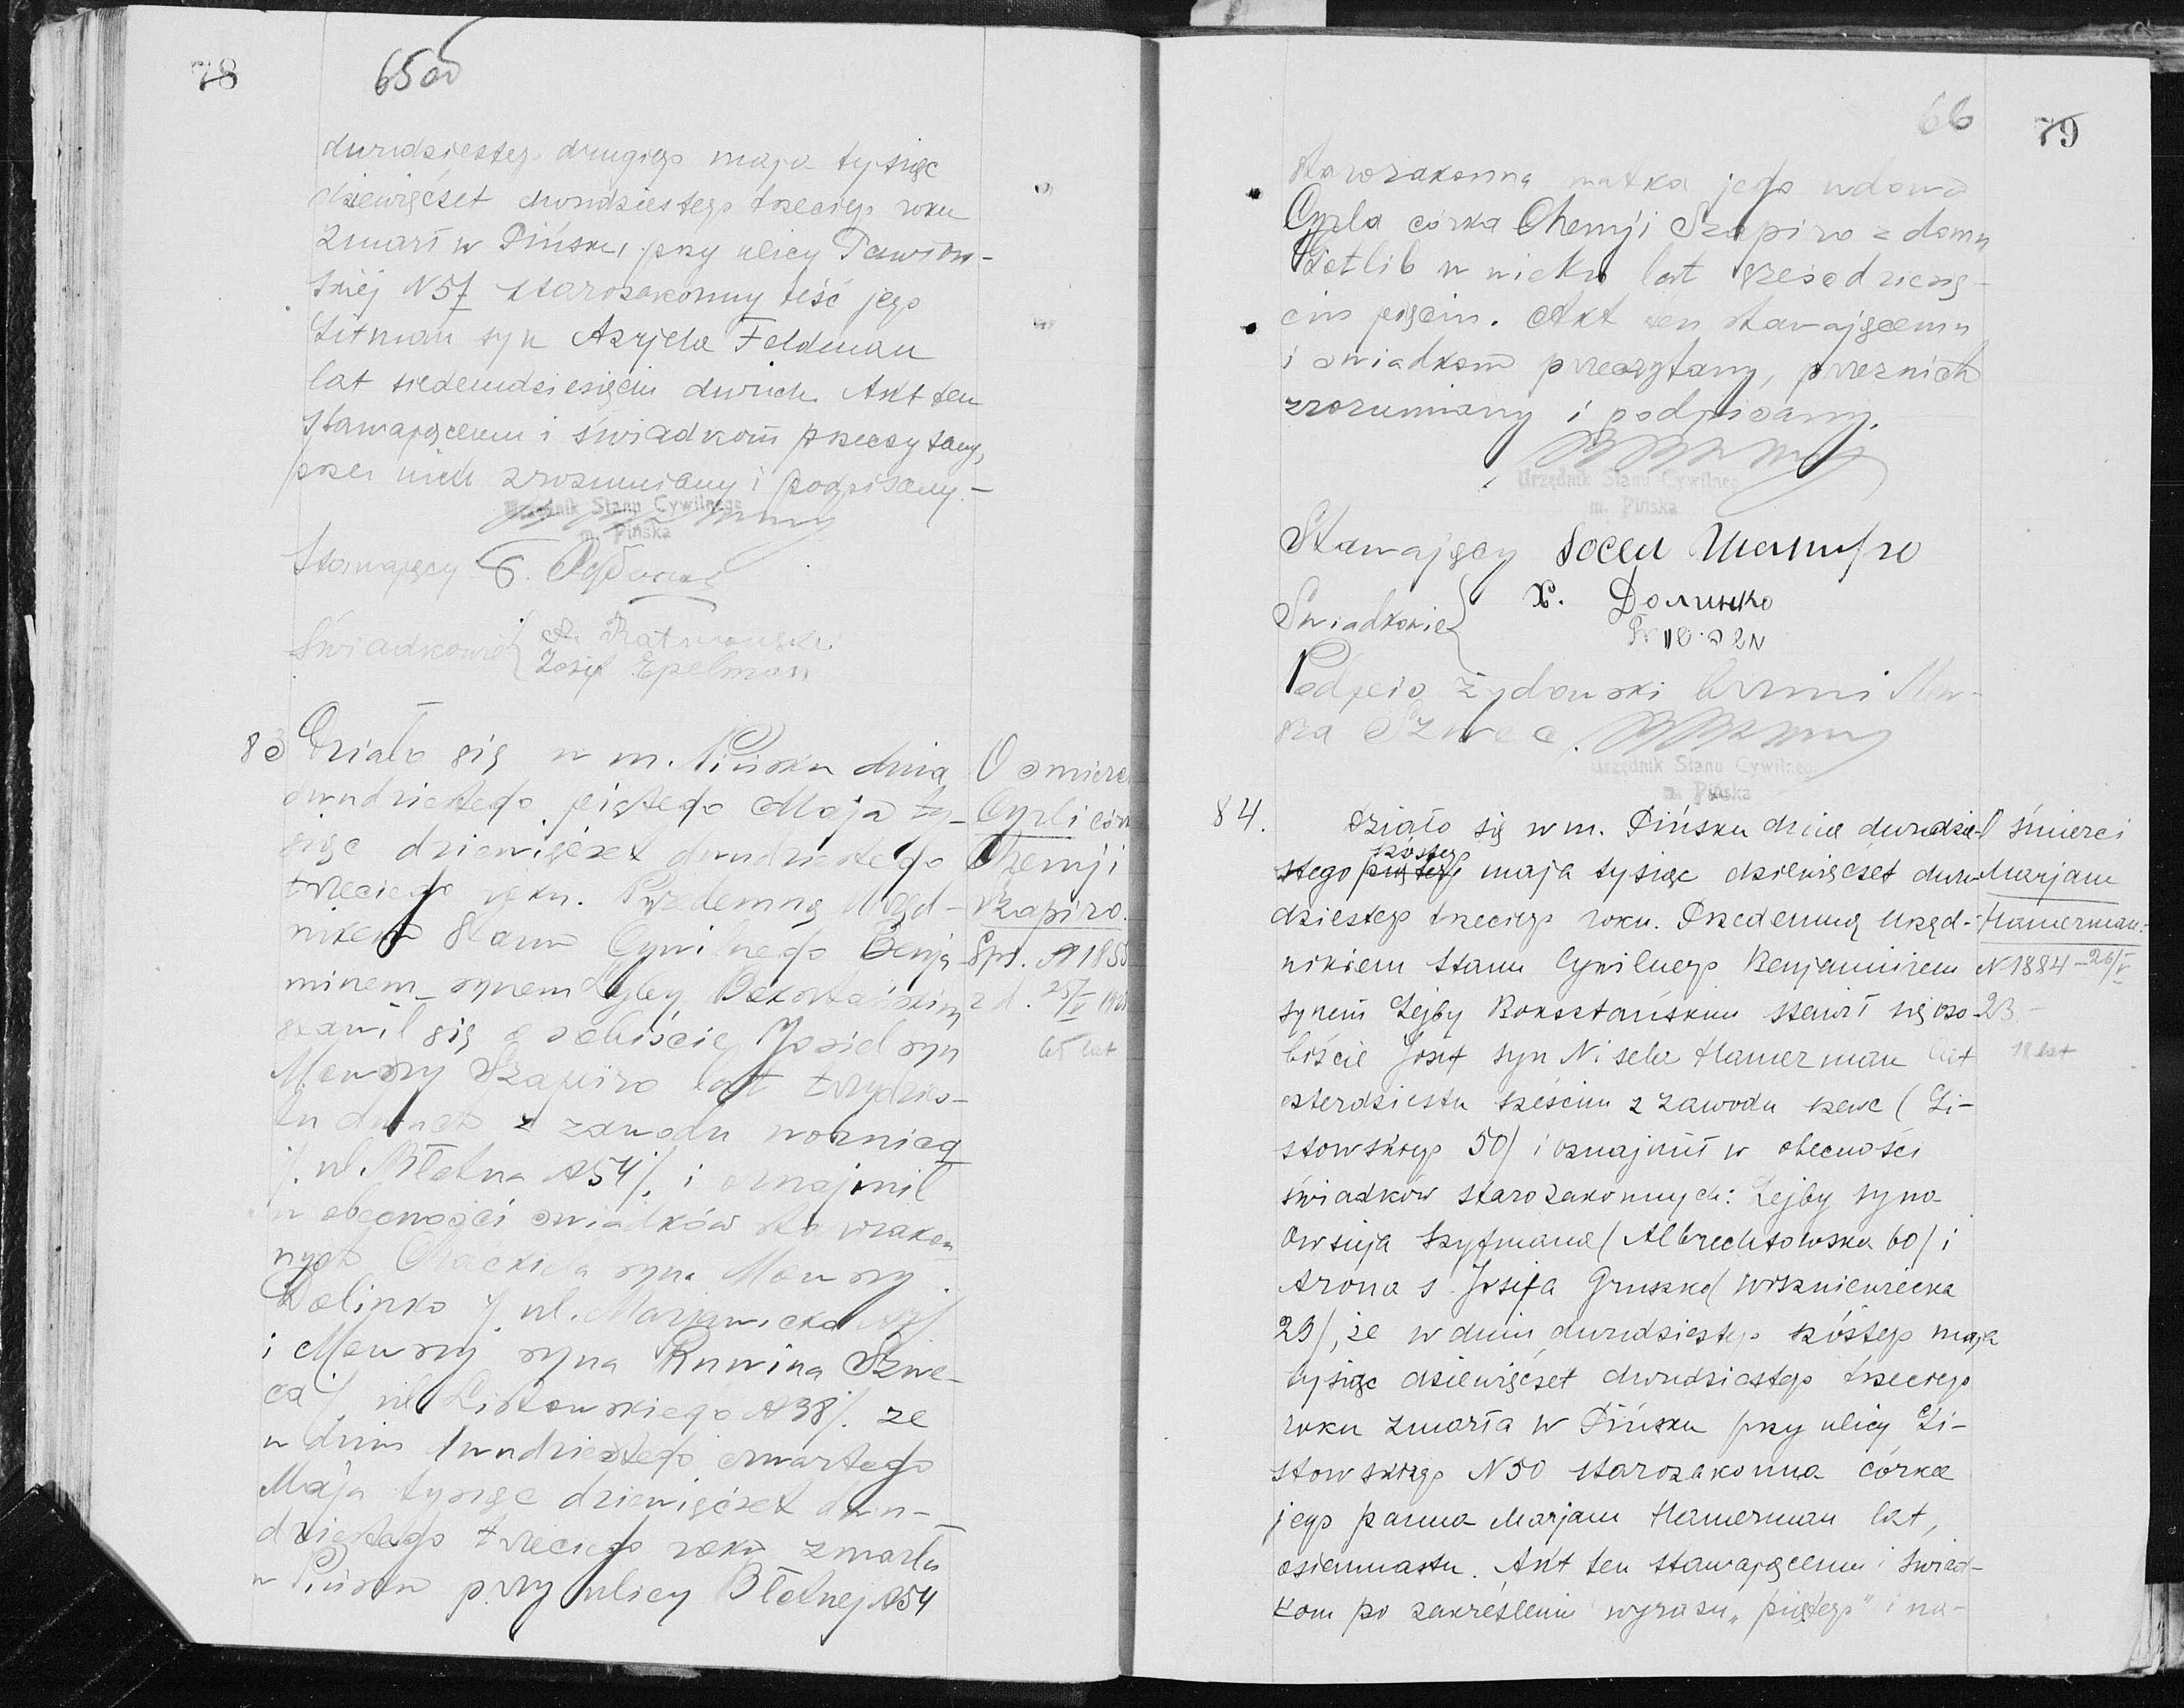 78
65od
dwudziestego drugiego maja tysiąc
dziewięćset dwudziestego trzeciego roku
zmarł w Pińsku, przy ulicy
skiej N57 starozakonny teść jego
Litman syn Azrjela Feldman
lat siedemdziesięciu dwuch. Akt ten
stawającemu i świadkom przeczytany,
przez nich zrozumiany i podpisany.-
Urzędnik Stanu Cywilnego
m. Pińska
Stawający
Świadkowie { A. Ratnowski
Josif Epelman
83 Działo się w m. Pińsku dnia
dwudziestego piątego Maja ty-
siąc dziewięćset dwudziestego
trzeciego roku. Przedemną Urzęd-
nikem Stanu Cywilnego Benja-
minem synem Lejby Bokształskim
stawił się osobiście Josiel syn
Mowszy Szapiro lat trzydzies-
tu dwuch z zawodu woźnica
/. ul. Błotna N54/. i oznajmil
w obecności świadków starozakon
nych Chackiela syna Mowszy
Dolinko /. ul. Marjawicka
i Mowszy syna Ruwina Szwe-
ca /. ul Listowskiego N38/. ze
w dniu dwudziestego czwartego
Maja tysiąc dziewięćset dwu-
dziestego trzeciego roku zmarła
w Pińsku przy ulicy Błotnej N54
O śmierci
Cyrli córk
Chemji
Szapiro.
65 lat
66
79
starozakonna matka jego wdowa
Cyrla córka Chemji Szapiro z domu
Gotlib w wieku lat sześćdziesię-
ciu pięciu. Akt ten stawającemu
i swiadkom przeczytany, przez nich
zrozumiany i podpisany.
Urzędnik Stanu Cywilneg
m. Pińska
Stawający Шапиро
Swiadkowie} Х. Долинко
Podpis żydowski brzmi Mow-
sza Szwec.
Urzędnik Stanu Cywilnego
m. Pińska
84. Działo się w m. Pińsku dnia dwudzie-
szóstego
stego piątego maja tysiąc dziewięćset dwu-
dziestego trzeciego roku. Przedemną Urzęd-
nikiem Stanu Cywilnego Benjaminem
synem Lejby Bokształskim stawił się oso-
biście Josif syn Nisela Hamerman lat
czterdziestu sześciu z zawodu szewc (Li-
stowskiego 50/ i oznajmił w obecności
świadków starozakonnych: Lejby syna
Owsieja Szyfmana (Albrechtowska 60/ i
Arona s. Josifa Gruszko (Wiszniewiecka
29/, że w dniu dwudziestego szóstego maja
tysiąc dziewięćset dwudziestego trzeciego
roku zmarła w Pińsku przy ulicy Li-
stowskiego N50 starozakonna córka
jego panna Marjam Hamerman lat,
osiemnastu. Akt ten stawającemu i świad-
kom po zakreśleniu wyrazu „piątego" i na-
O śmierci
Marjam
Hamerman.
N1884-26/V
23.-
18 lat